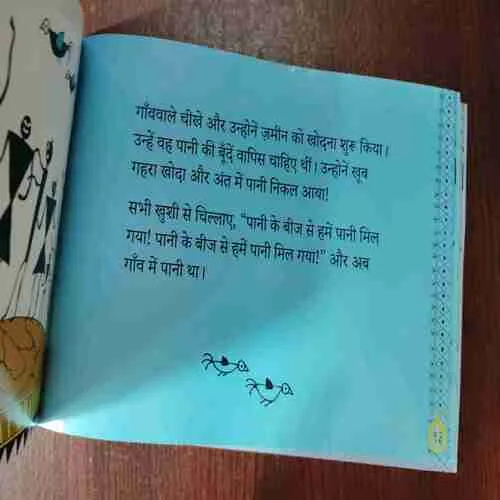 गाँववाले चीखे और उन्होनें ज़मीन को खोदना शुरू किया।
उन्हें वह पानी की बूँदें वापिस चाहिए थीं। उन्होनें खूब
गहरा खोदा और अंत में पानी निकल आया!
सभी खुशी से चिल्लाए, “पानी के बीज से हमें पानी मिल
गया! पानी के बीज से हमें पानी मिल गया!” और अब
गाँव में पानी था।